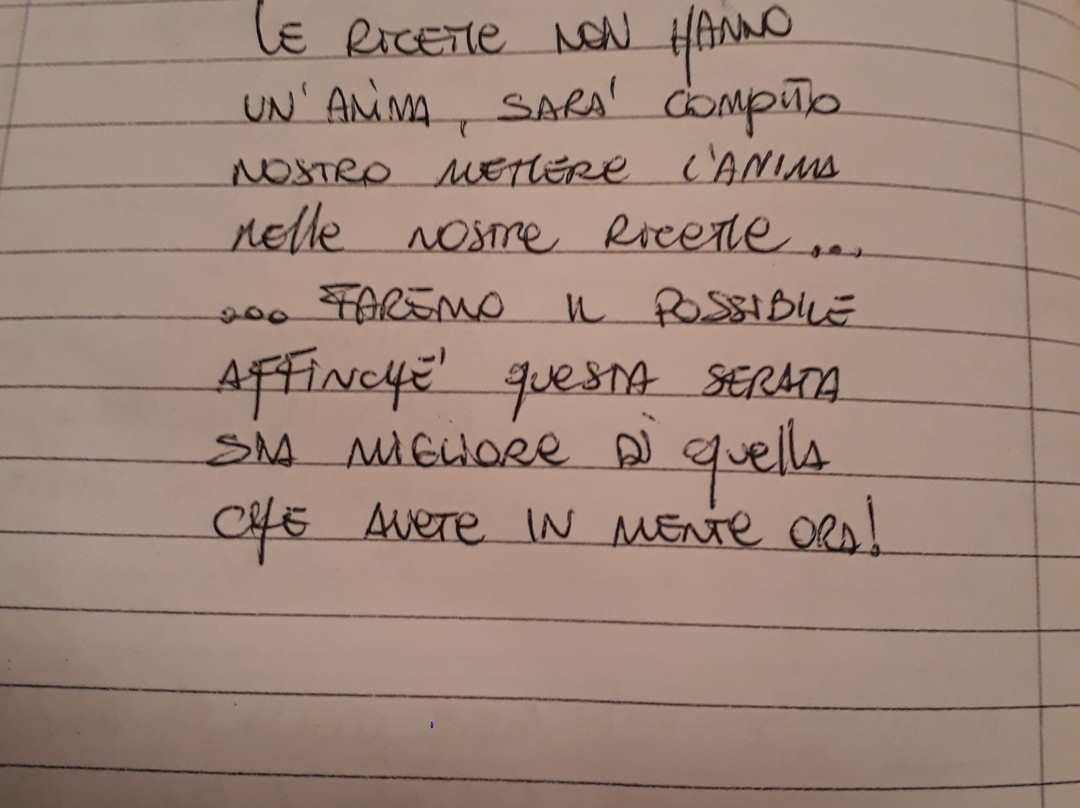 LE RICETTE NON HANNO
UN'ANIMA, SARA' COMPITO
NOSTRO METTERE L'ANIMA
NELLE NOSTRE RICETTE...
...FAREMO IL POSSIBILE
AFFINCHE' QUESTA SERATA
SIA MIGLIORE DI QUELLA
CHE AVETE IN MENTE ORA!